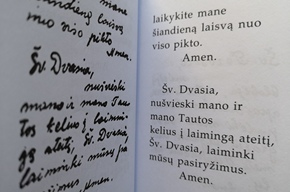 šiandieną laisvą
nuo viso
pikto
Amen.
Šv. Dvasia,
nušvieski
mano ir mano Tau-
tos kelius į laimin-
gą ateitį, Šv. Dvasia,
laiminki mūsų pa-
Amen.
laikykite mane
šiandieną laisvą nuo
viso pikto.
Amen.
Šv. Dvasia,
nušvieski mano ir
mano Tautos
kelius į laimingą ateitį,
Šv. Dvasia, laiminki
mūsų pasiryžimus.
Amen.